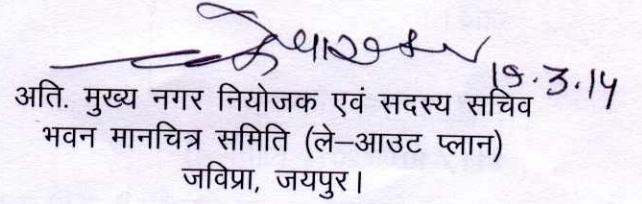 अति. मुख्य नगर नियोजक एवं सदस्य सचिव
भवन मानचित्र समिति (ले–आउट प्लान)
जविप्रा, जयपुर।